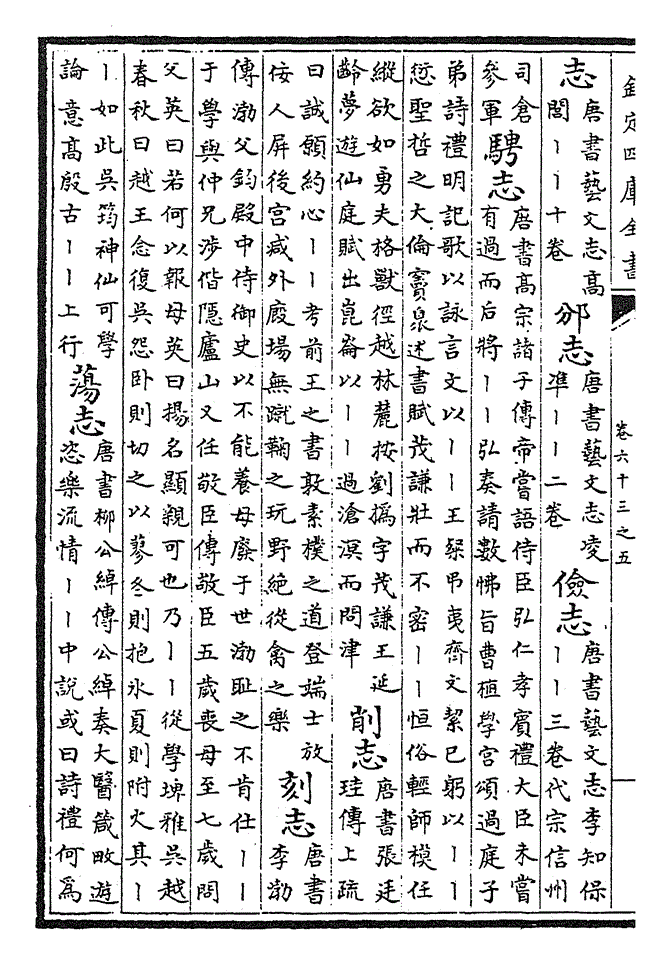 欽定四庫全書
卷六十三之五
志 唐書藝文志高
閭丨丨十卷
邠志 唐書藝文志凌
準丨丨二卷
儉志 唐書藝文志李知保
丨丨三卷代宗信州
司倉
參軍
騁志 唐書高宗諸子傳帝嘗語侍臣弘仁孝賓禮大臣未嘗
有過而后將丨丨弘奏請數怫旨曹植學宮頌過庭子
弟詩禮明記歌以詠言文以丨丨王粲弔夷齊文絜已躬以丨丨
愆聖哲之大倫竇臮述書賦茂謙壯而不密丨丨恒俗輕師模任
縱欲如勇夫格獸徑越林麓按劉撝字茂謙王延
齡夢遊仙庭賦出崑崙以丨丨過滄溟而問津
削志 唐書張廷
珪傳上疏
曰誠願約心丨丨考前王之書敦素樸之道登端士放
佞人屏後宮減外廄場無蹴鞠之玩野絕從禽之樂
刻志 唐書
李渤
傳渤父鈞殿中侍御史以不能養母廢于世渤恥之不肯仕丨丨
于學與仲兄涉偕隱廬山又任敬臣傳敬臣五歲喪母至七歲問
父英曰若何以報母英曰揚名顯親可也乃丨丨從學埤雅吳越
春秋曰越王念復吳怨臥則切之以蓼冬則抱氷夏則附火其丨
丨如此吳筠神仙可學
論意高殷古丨丨上行
蕩志 唐書柳公綽傳公綽奏大醫箴畋遊
恣樂流情丨丨中說或曰詩禮何爲